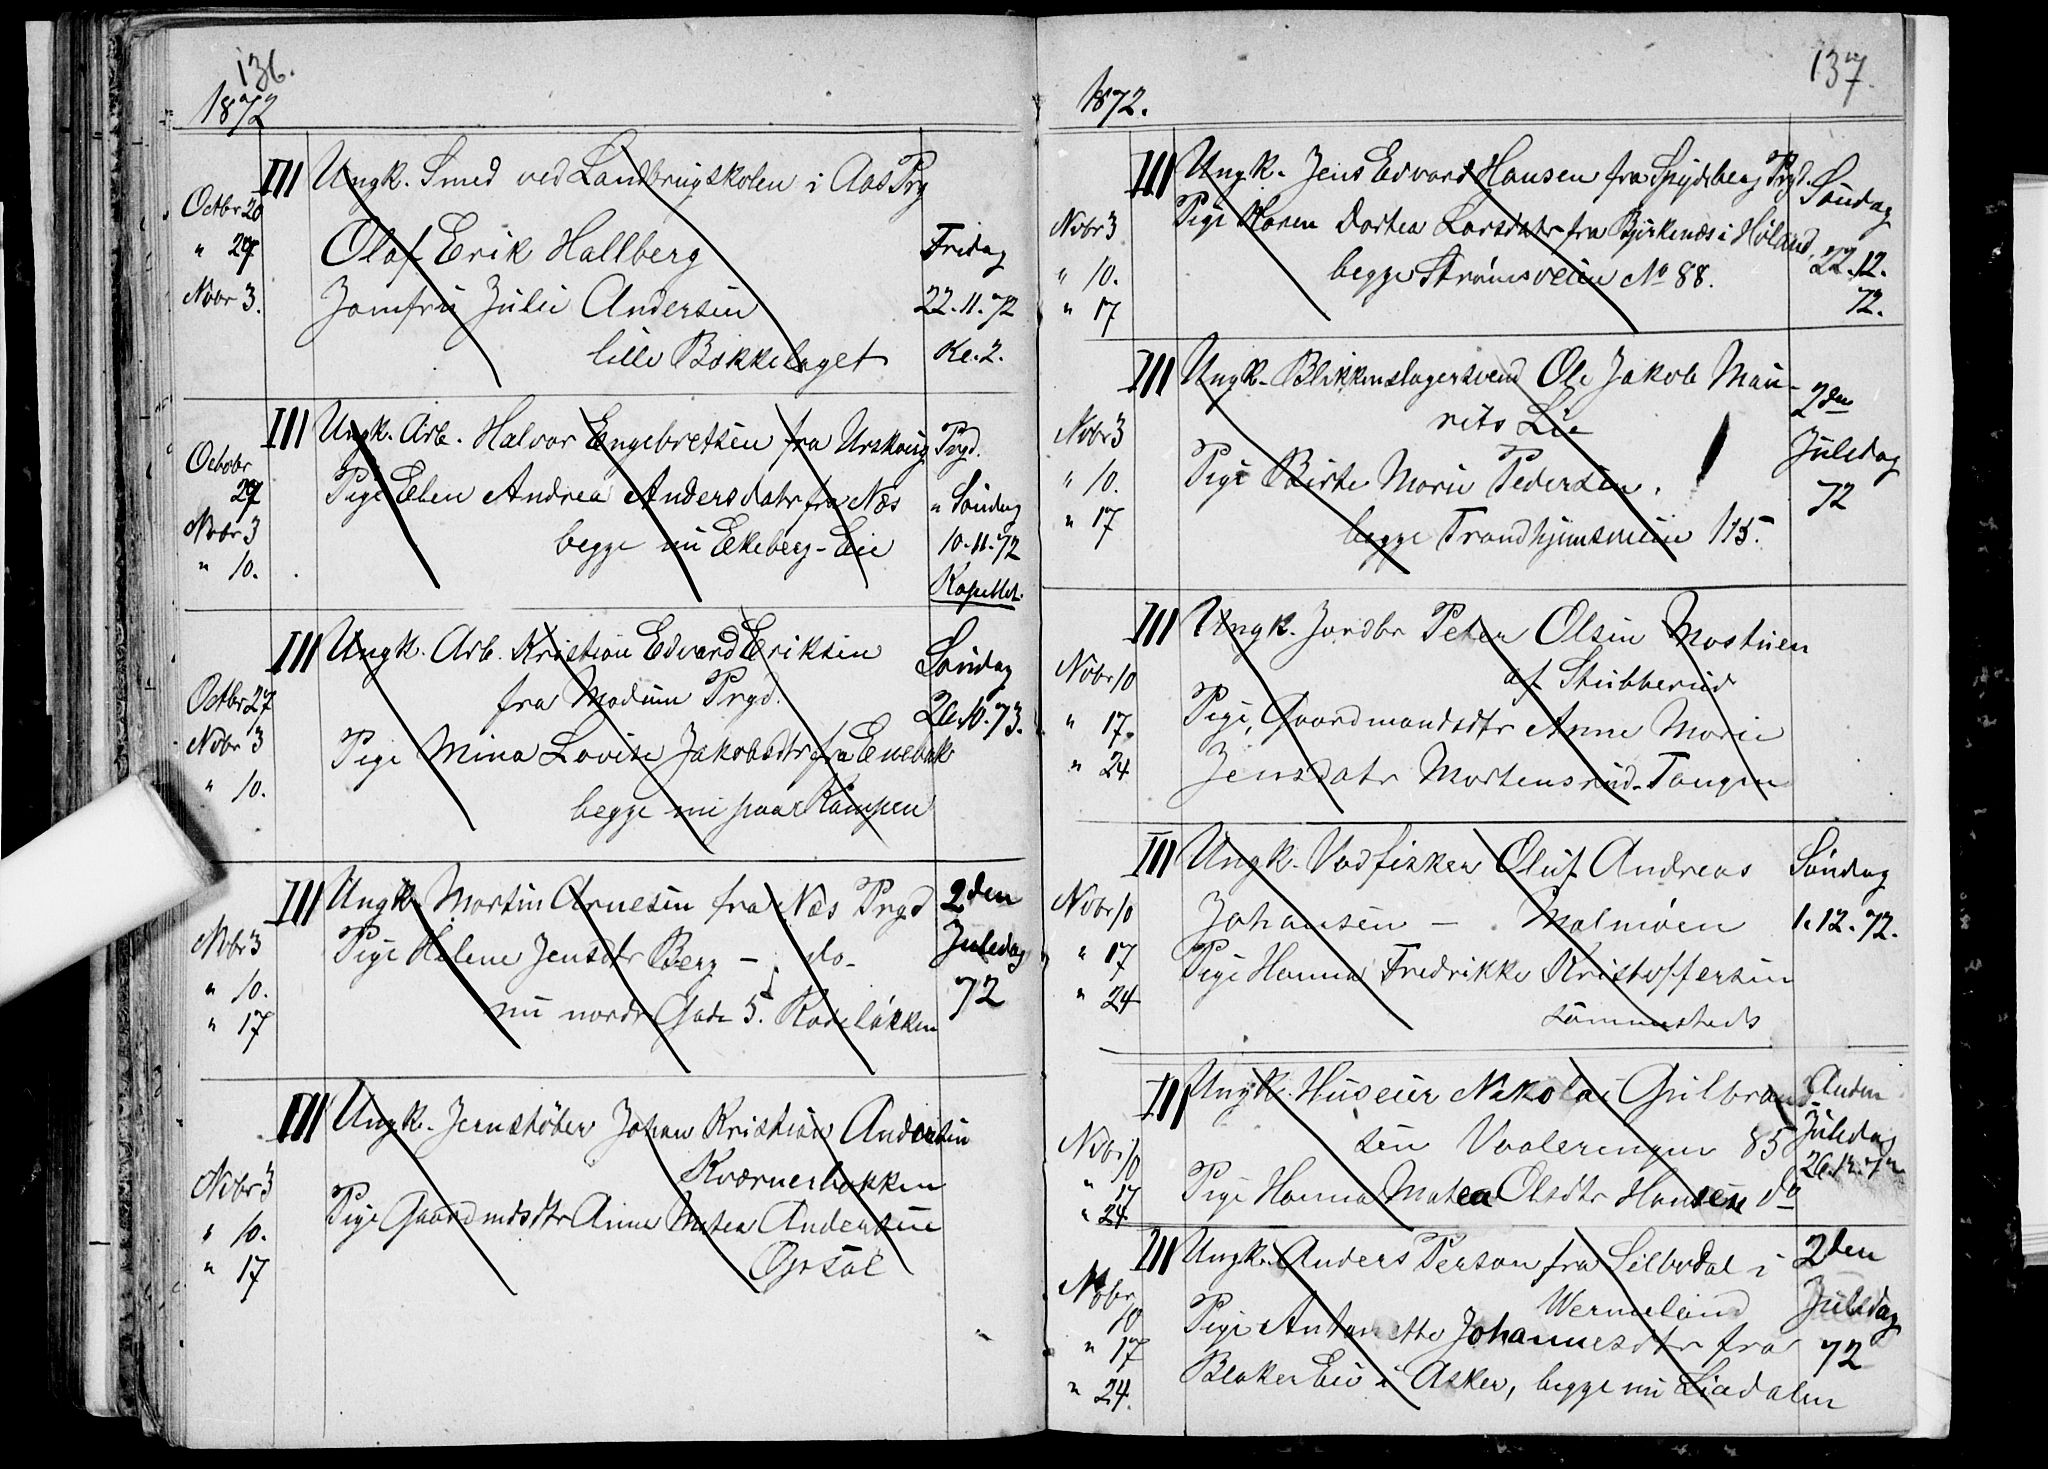 136.
1872
III Ungk. Smed ved Landbrugskolen i Aas Prg
Octbr 20
" 27
Nobr 3.
Olaf Erik Hallberg
Jomfru Julie Andersen
lille Bækkelaget
Fredag
22.11.72
Kl. 2.
III Ungk. Arb. Halvor Engebretsen fra Urskoug Prgd.
Octobr
27
Nobr 3
" 10.
Pige Elen Andrea Andersdatr fra Næs
begge nu Ekeberg-Eie
" Søndag
10.11.72
Kapellet.
III Ungk. Arb. Kristian Edvard Eriksen
fra Modum Prgd.
Octbr 27
Nobr 3
" 10.
Pige Mina Lovise Jakobsdtr fra Enebak
begge nu paa Kampen
Søndag
III Ungk. Martin Arnesen fra Næs Prgd
Nobr 3
" 10.
" 17
Pige Helene Jensdtr Berg - do-
nu nordr Gade 5. Rodeløkken
2den
Juledag
72
III Ungk. Jernstøber Johan Kristian Andersen
Kværnerbakken
Nobr 3
" 10.
" 17
Pige Gaardmdsdtr Anne Matea Andersen
Opsal
137
1872.
III Ungk. Jens Edvard Hansen fra Spydeberg Prgd.
Nobr 3
" 10.
" 17
Pige Karen Dortea Larsdatr fra Bjørkenæs i Høland,
begge Strømsveien No 88.
Søndag
22.12.
72.
III Ungk. Blikkenslagersvend Ole Jakob Mau-
ritz Lie
Nobr 3
" 10.
" 17
Pige Birthe Marie Pedersen.
begge Trondhjemsveien 115.
2den
Juledag
72
III Ungk. Jordbr Peter Olsen Mostuen
af Stubberud
Nobr 10
" 17.
" 24
Pige, Gaardmandsdtr Anne Marie
Jensdatr Mortensrud-Tangen
III Ungk. Vadfisker Oluf Andreas
Johansen - Malmøen
Nobr 10
" 17
" 24
Pige Hanna Fredrikke Kristoffersen
sammesteds
Søndag
1.12.72.
III Ungk. Huseier Nikolai Gulbrand
sen Vaalerengen 85
Nobr 10
" 17
" 24
Pige Hanna Matea Olsdtr Hansen do
Anden
Juledag
26.12.72
III Ungk. Anders Person fra Silbodal i
Wermeland
Nobr
10
" 17
" 24.
Pige Antonette Johannesdtr fra
Blaker Eie i Asker, begge nu Liadalen
2den
Juledag
72